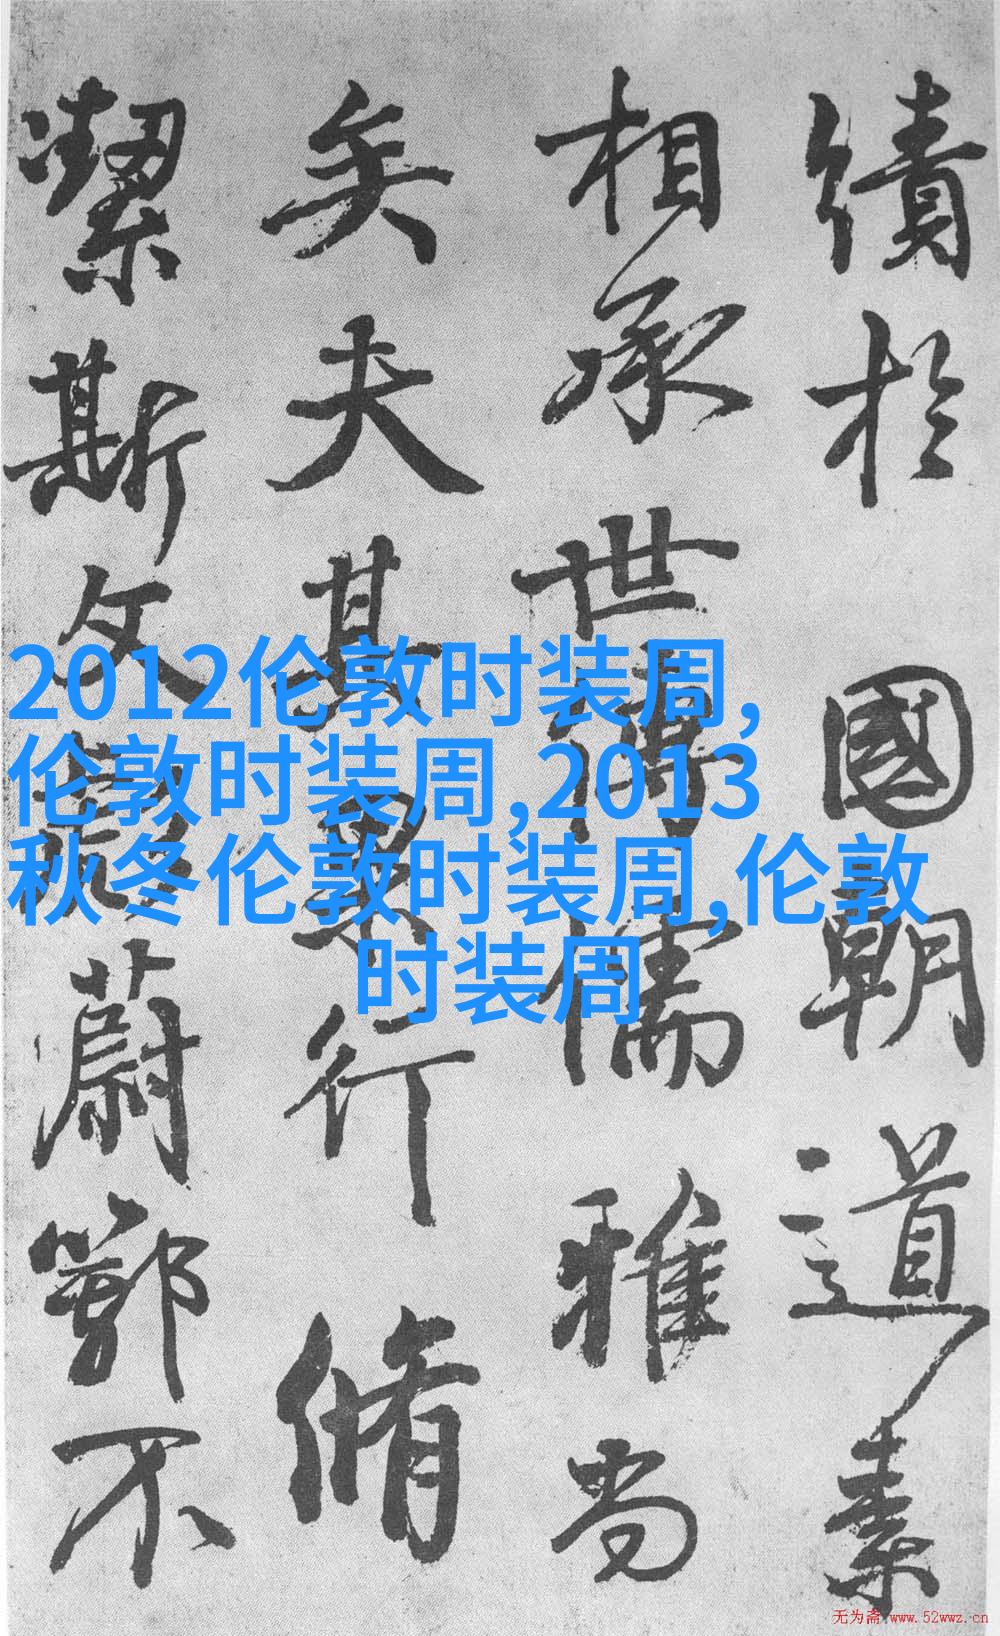 績於國朝道素
相承世傳儒雅尚
矣夫其果行脩
潔斯文彪蔚鄂不
2012伦敦时装周,
伦敦时装周,2013
秋冬伦敦时装周,伦敦
时装周
无为斋 www.52wwz.cn